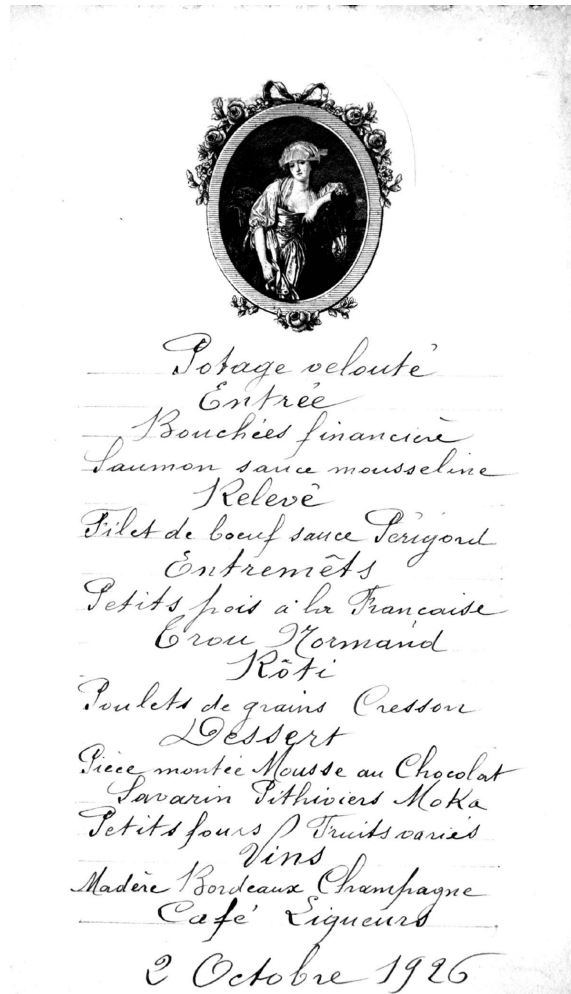 Potage velouté
Entrée
Bouchées financière
Saumon sauce mousseline
Relevé
Filet de boeuf sauce Périgord
Entremêts
Petits pois à la Francaise
Trou Normand
Rôti
Poulets de grains Cresson
Dessert
Pièce montée Mousse au Chocolat
Savarin Pithiviers Moka
Petits fours Fruits variés
Vins
Madère Bordeaux Champagne
Café Liqueurs
2 Octobre 1926